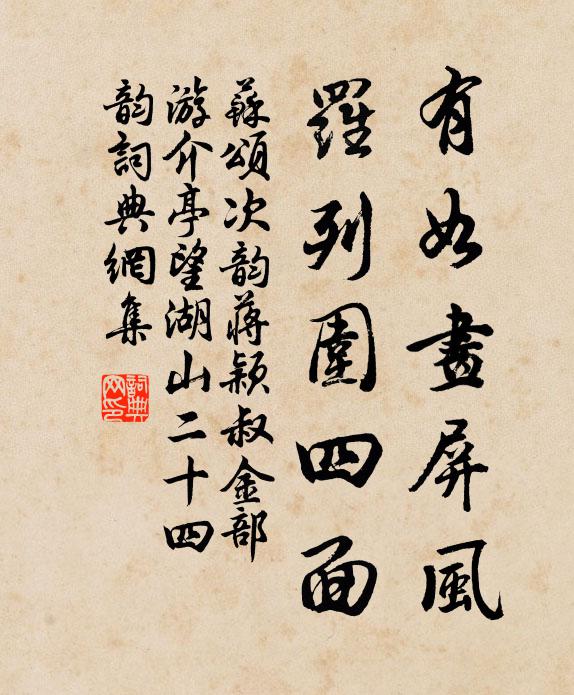 有如畫屏風
羅列圍四面
蘇頌次韵蔣颖叔金部
游介亭望湖山二十四
韵詞典網集
詞典網印